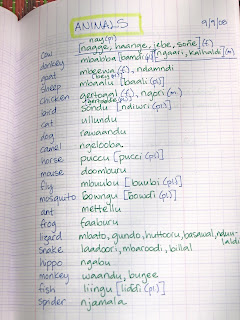 ANIMALS
9/9/08
nay (pl)
cow [nagge, haange, jebe, sofie] (f)
donkey mbabba [bamdi (pl)] [ngaari, kalhaldi] (m)
goat mbeewa (f), ndamndi
bey (pl)
sheep mbaalu [baali (pl)]
chicken gertogal (f), ngori (m)
gertoode (pl)
bird sondu [ndiwri (pl)]
cat ullundu
dog rawandu
camel ngelooba
horse puccu [pucci (pl)]
mouse doomburu
fly mbuubu [buubi (pl)]
mosquito bowngu [bowdi (pl)]
ant mettellu
frog faaburu
lizard mbato, gundo, huttooru, basawal, nduu-
laldi
snake laadoori, mbaroodi, billal
hippo ngabu
monkey waandu, bugee
fish liingu [liddi (pl)]
spider njamala